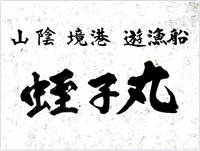 山陰 境港 遊漁船
蛭子丸